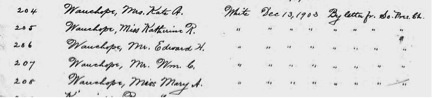 204 Wauchope, Mrs. Kate A. White Dec 13, 1903 By letter fr. So. Pres. Ch.
205 Wauchope, Miss Katherine R. " " " " " " " "
206 Wauchope, Mr. Edward H. " " " " " " " "
207 Wauchope, Mr. Wm. C. " " " " " " " "
208 Wauchope, Miss Mary A. " " " " " " " "